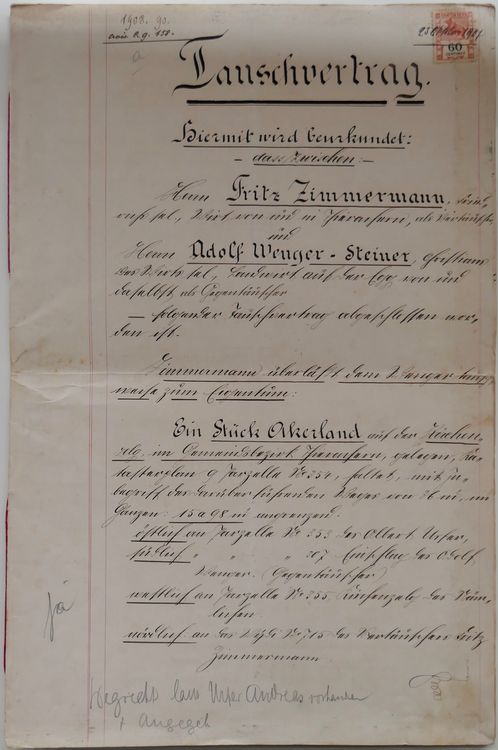 1908. 90.
25 Oktober 1907
60
Tauschvertrag.
Hiermit wird beurkundet:
— dass zwischen: —
Herrn Fritz Zimmermann,
sel., Wirt von und in Thierachern, als Vertauscher
und
Herrn Adolf Wenger-Steiner, Christians
des Wirts sel., Landwirt auf der Egg von und
daselbst, als Gegentauscher
— folgender Tauschvertrag abgeschlossen wor-
den ist.
Zimmermann überlässt dem Wenger tausch-
weise zum Eigentum:
Ein Stück Akerland auf der
im Gemeindebezirk Thierachern, gelegen, Ka-
tasterplan 9 Parzelle No 354, haltet, mit In-
begriff des darüber führenden Weges von 36 m, im
Ganzen: 15 a 98 m angrenzend:
östlich an Parzelle No 353 des Albert Urfer,
südlich " " " 307 des Adolf
Wenger. Gegentauscher
westlich an Parzelle No 355
nördlich an des No 715 des Vertauschers Fritz
Zimmermann
ja
Wegrecht Urfer Andreas vorhanden
+ angegeb